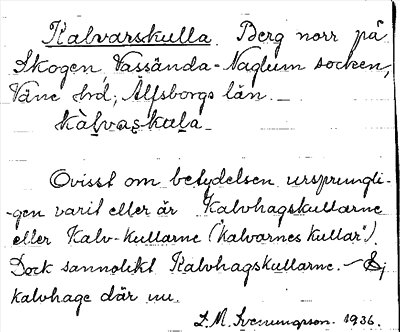 Kalvarskulla. Berg norr på
Skogen, Vassända-Naglum socken,
Väne hd, Älfsborgs län.
kàlvaskula
Ovisst om betydelsen ursprungli-
-gen varit eller är Kalvhagskullarne
eller Kalv-kullarne ("kalvarnes kullar").
Dock sannolikt Kalvhagskullarne. – Ej
kalvhage där nu.
L. M. Svenungson. 1936.